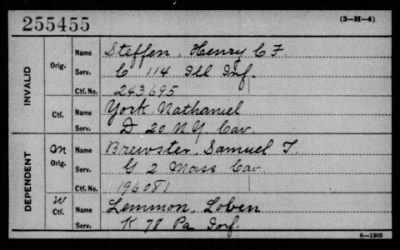 255455 (3-H-4)
INVALID
Orig. Name Steffen, Henry C. F.
Serv. C 114 Ill Inf.
Ctf. No. 243695
Ctf. Name York Nathaniel
Serv. D 20 N.Y. Cav.
DEPENDENT
M Orig. Name Brewster Samuel T.
Serv. G 2 Mass Cav.
Ctf. No. 196081
W Ctf. Name Lemmon, Loben
Serv. K 78 Pa Inf.
6-1303